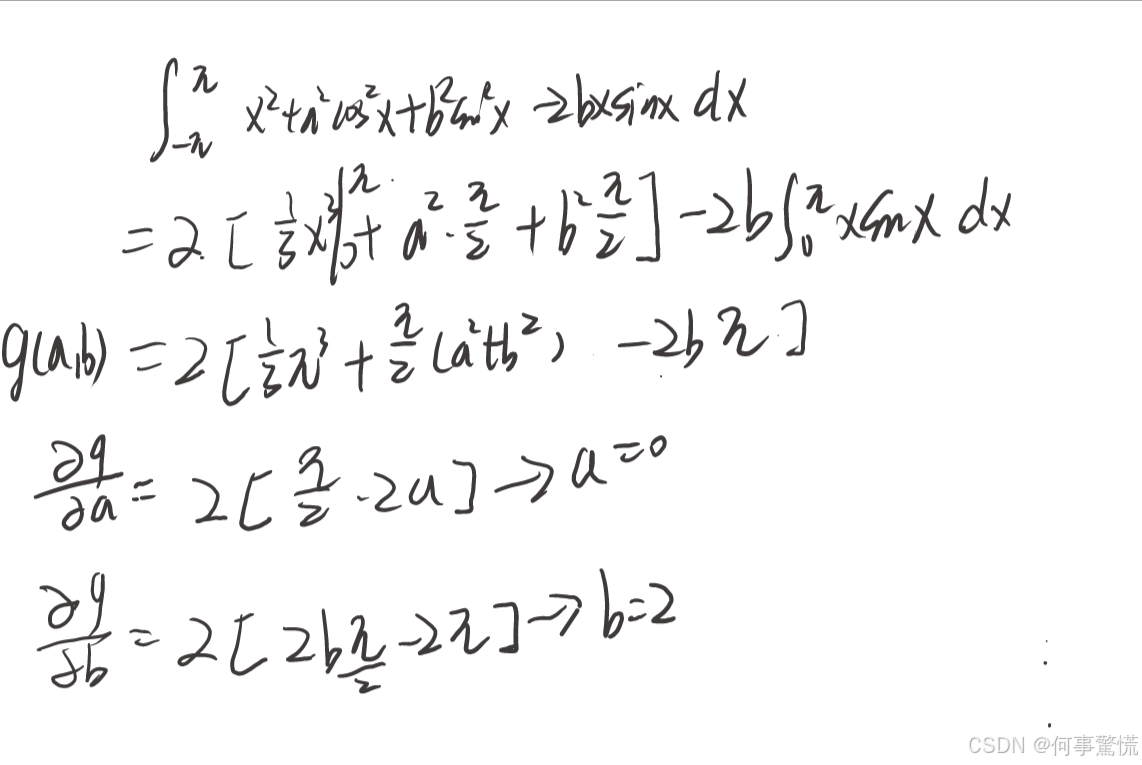 ∫_{-π}^{π} x²+a²cos²x+b²sin²x -2bxsinx dx
=2[⅓x³|₀^π+a²·π/2+b²π/2]-2b∫₀^π xsinx dx
g(a,b)=2[⅓π³+π/2(a²+b²) -2bπ]
∂g/∂a=2[π/2·2a]→a=0
∂g/∂b=2[2bπ/2-2π]→b=2
CSDN @何事驚慌